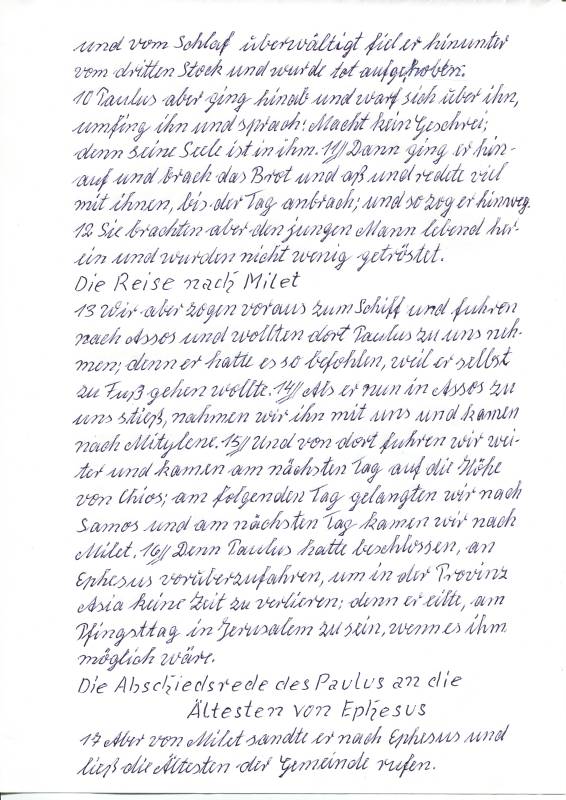 und vom Schlaf überwältigt fiel er hinunter
vom dritten Stock und wurde tot aufgehoben.
10 Paulus aber ging hinab und warf sich über ihn,
umfing ihn und sprach: Macht kein Geschrei;
denn seine Seele ist in ihm. 11// Dann ging er hin-
auf und brach das Brot und aß und redete viel
mit ihnen, bis der Tag anbrach; und so zog er hinweg.
12 Sie brachten aber den jungen Mann lebend her-
ein und wurden nicht wenig getröstet.
Die Reise nach Milet
13 Wir aber zogen voraus zum Schiff und fuhren
nach Assos und wollten dort Paulus zu uns neh-
men; denn er hatte es so befohlen, weil er selbst
zu Fuß gehen wollte. 14// Als er nun in Assos zu
uns stieß, nahmen wir ihn mit uns und kamen
nach Mitylene. 15// Und von dort fuhren wir wei-
ter und kamen am nächsten Tag auf die Höhe
von Chios; am folgenden Tag gelangten wir nach
Samos und am nächsten Tag kamen wir nach
Milet. 16// Denn Paulus hatte beschlossen, an
Ephesus vorüberzufahren, um in der Provinz
Asia keine Zeit zu verlieren; denn er eilte, am
Pfingsttag in Jerusalem zu sein, wenn es ihm
möglich wäre.
Die Abschiedsrede des Paulus an die
Ältesten von Ephesus
17 Aber von Milet sandte er nach Ephesus und
ließ die Ältesten der Gemeinde rufen.